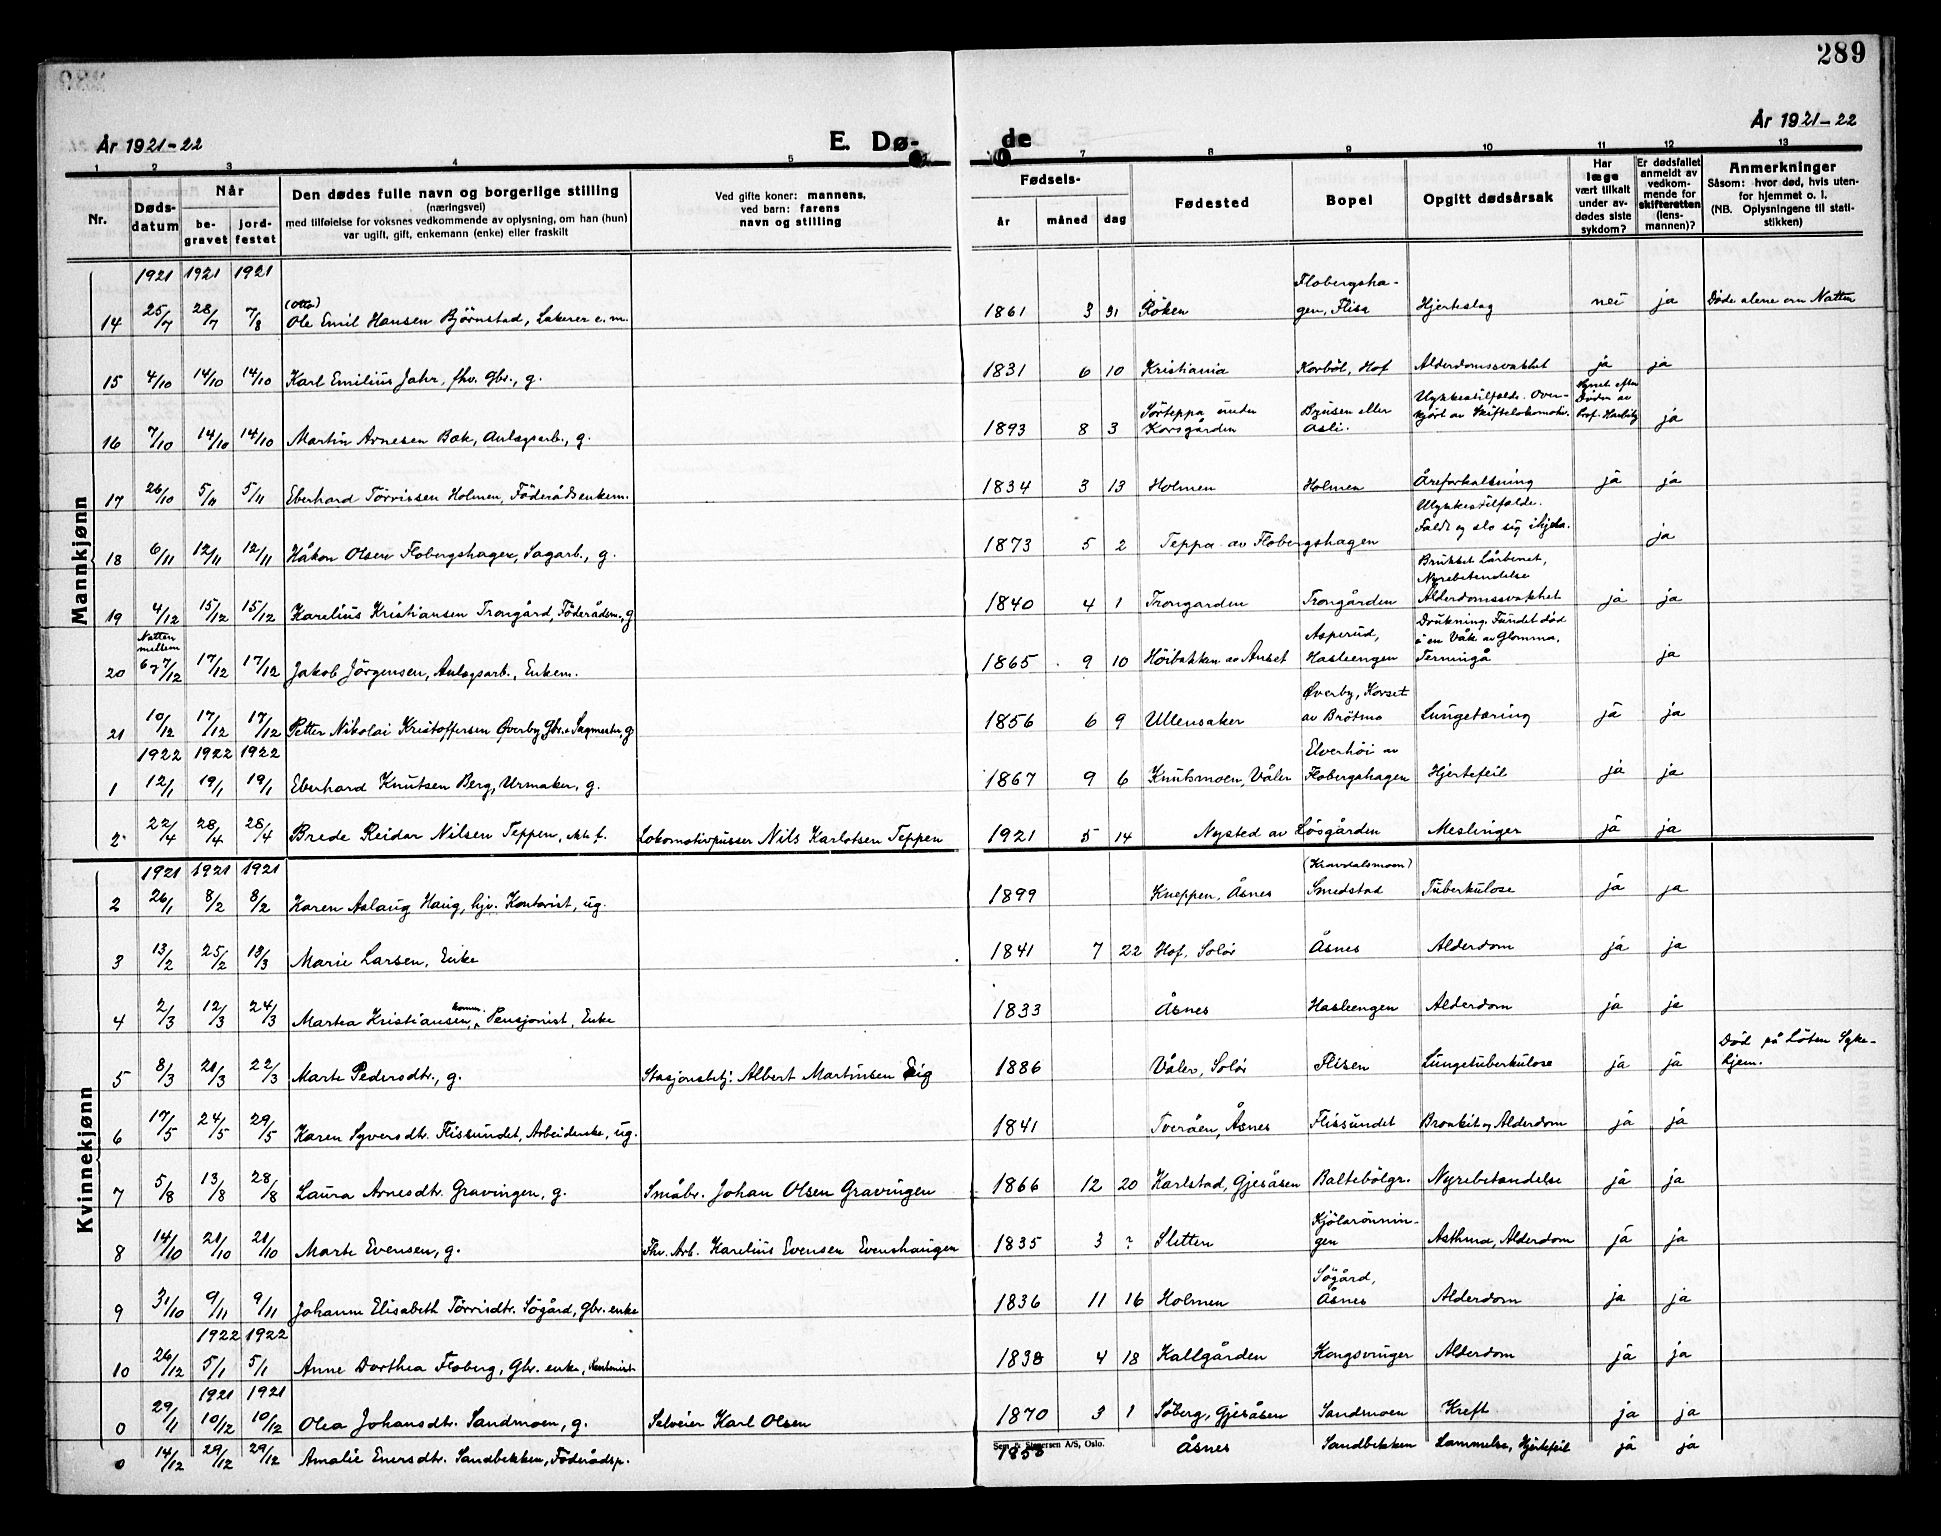 289
År 1921-22
E. Dø-
de
År 1921-22
1 2 3 4 5 7 8 9 10 11 12 13
Nr.
Døds-
datum
Når
be-
gravet
jord-
festet
Den dødes fulle navn og borgerlige stilling
(næringsvei)
med tilføielse for voksnes vedkommende av oplysning, om han (hun)
var ugift, gift, enkemann (enke) eller fraskilt
Ved gifte koner: mannens,
ved barn: farens
navn og stilling
Fødsels-
år måned dag
Fødested
Bopel
Opgitt dødsårsak
Har
læge
vært tilkalt
under av-
dødes siste
sykdom?
Er dødsfallet
anmeldt av
vedkom-
mende for
skifteretten
(lens-
mannen)?
Anmerkninger
Såsom: hvor død, hvis uten-
for hjemmet o. l.
(NB. Oplysningene til stati-
stikken)
Mannkjønn
1921 1921 1921
(Otto)
Flobergsha-
14 25/7 28/7 7/8 Ole Emil Hansen Bjørnstad, Lakerer e.m. 1861 3 31 Röken gen, Flisa Hjerteslag nei ja Døde alene om Natten
15 4/10 14/10 14/10 Karl Emilius Jahr, fhv. Gbr., g. 1831 6 10 Kristiania Korböl, Hof Alderdomssvakhet ja ja
Sörteppa under Ulykkestilfælde. Over-
16 7/10 14/10 14/10 Martin Arnesen Bak, Anlægsarb., g. 1893 8 3 Korsgården eller Åsli. kjört av Skiftelokomotiv. Synet efter Döden av Prof. Harbitz ja
17 26/10 5/11 5/11 Eberhard Törrissen Holmen, Föderådsenkem. 1834 3 13 Holmen Holmen Åreforkalkning ja ja
Ulykkestilfælde.
Faldt og slo sig ihjel.
18 6/11 12/11 12/11 Håkon Olsen Flobergshagen, Sagarb., g. 1873 5 2 Teppa av Flobergshagen ja
Brukket Lårbenet,
Nyrebetændelse
19 4/12 15/12 15/12 Karelius Kristiansen Trongård, Föderådsm., g 1840 4 1 Trongarden Trongården Alderdomssvakhet ja ja
Natten
mellem
Asperud, Drukning. Fundet död
i en Våk av Glomma,
20 6-7/12 17/12 17/12 Jakob Jörgensen, Anlægsarb., Enkem. 1865 9 10 Höibakken av Arset Hasleengen Terningå ja
Øverby, Korset
21 10/12 17/12 17/12 Petter Nikolai Kristoffersen Øverby Gbr. & Sagmester, g 1856 6 9 Ullensaker av Brötmo Lungetæring ja ja
1922 1922 1922
Elverhöi av
1 12/1 19/1 19/1 Eberhard Knutsen Berg, Urmaker, g. 1867 9 6 Knutsmoen, Våler Flobergshagen Hjertefeil ja ja
2 22/4 28/4 28/4 Brede Reidar Nilsen Teppen, ekte f. Lokomotivpusser Nils Karlotsen Teppen 1921 5 14 Nysted av Lösgården Meslinger ja ja
Kvinnekjønn
1921 1921 1921
(Kravdalsmoen)
2 26/1 8/2 8/2 Karen Aslaug Haug, hjv. Kontorist, ug. 1899 Kneppen, Åsnes Smedstad Tuberkulose ja ja
3 13/2 25/2 13/3 Marie Larsen, Enke 1841 7 22 Hof, Solör Åsnes Alderdom ja ja
4 2/3 12/3 24/3 Martea Kristiansen, komm. Pensjonist, Enke 1833 Åsnes Hasleengen Alderdom ja ja
5 8/3 21/3 22/3 Marte Pedersdtr., g. Stasjonsbetj. Albert Martinsen Eig 1886 Våler, Solör Flisen Lungetuberkulose ja ja Död på Löten Syke-
hjem.
6 17/5 24/5 29/5 Karen Syversdtr. Flissundet, Arbeiderske, ug. 1841 Tveråen, Åsnes Flissundet Bronkit og Alderdom ja ja
7 5/8 13/8 28/8 Laura Arnesdtr. Gravingen, g. Småbr. Johan Olsen Gravingen 1866 12 20 Karlstad, Gjesåsen Baltebölgr. Nyrebetændelse ja ja
Kjölarönnin-
8 14/10 21/10 21/10 Marte Evensen, g. Fhv. Arb. Karelius Evensen Evenshaugen 1835 3 ? Sletten gen Asthma, Alderdom ja ja
Sögård,
9 31/10 9/11 9/11 Johanne Elisabeth Törrisdtr. Sögård, Gbr. enke 1836 11 16 Holmen Åsnes Alderdom ja ja
1922 1922
10 26/12 5/1 5/1 Anne Dorthea Floberg, Gbr. enke, Rentenist 1838 4 18 Kallgården Kongsvinger Alderdom ja ja
1921 1921
0 29/11 10/12 10/12 Olea Johansdtr. Sandmoen, g. Selveier Karl Olsen 1870 3 1 Söberg, Gjesåsen Sandmoen Kreft ja ja
Sem & Stenersen A/S, Oslo.
0 14/12 29/12 29/12 Amalie Enersdtr. Sandbekken, Föderådsp. 1853 Åsnes Sandbekken Lammelse, Hjertefeil ja ja